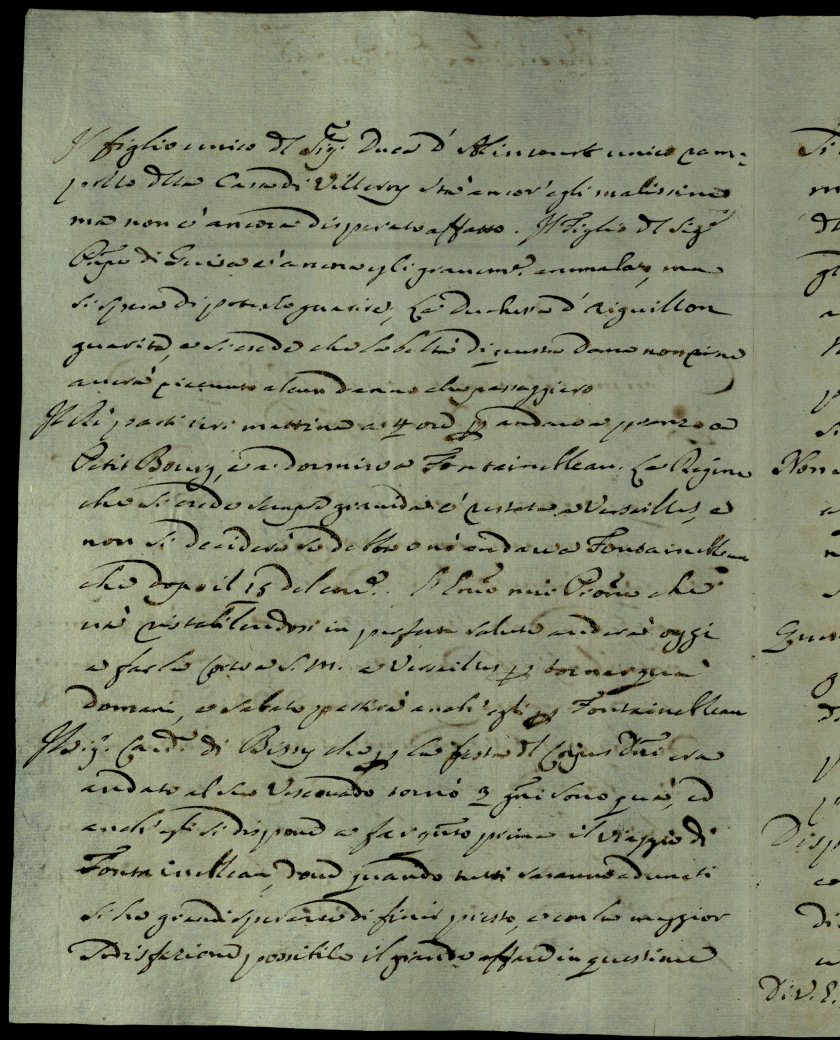 Il figlio unico del Sigr. Duca d'Alincourt unico ram=
pollo della Casa di Villeroy stà ancor'egli malissimo
ma non è ancora disperato affatto. Il Figlio del Sigr.
Pnpe di Guisa è ancora egli gravemte. ammalato, ma
si spera di poterlo guarire, La Duchessa d'Aiguillon
guarita, e si crede che la beltà di questa Dama non
averà alcun danno che passaggiero
Il Rè partì ieri mattina a 4 ore p andare a pranzo a
Petit Bourg, e a dormire a Fontainebleau. La Regina
che si crede sempre gravida è restata a Versailles, e
non si deciderà se debba o nò andare a Fontainebleau
che dopo il 15 del corre. L'Emo mio Prone che
và ristabilendosi in perfetta salute anderà oggi
a far la Corte a S. M. a Versailles p tornar quà
domani, e Sabato partirà anch'egli p Fontainebleau
Il Sigr. Card. di Bissy che p la festa del Corpus Dni era
andato al suo Vescovado tornò 3 gni sono quà, ed
anch'egli si dispone a far quto prima il viaggio di
Fontainebleau, dove quando tutti saranno adunati
si ha grande speranza di finir presto, e con la maggior
sodisfazione possibile il grande affare in quessime
Si
m
del
gl
a
p
si
Non
a
n
s
Ques
g
di
p
Disp
co
di
u
Di V. E.